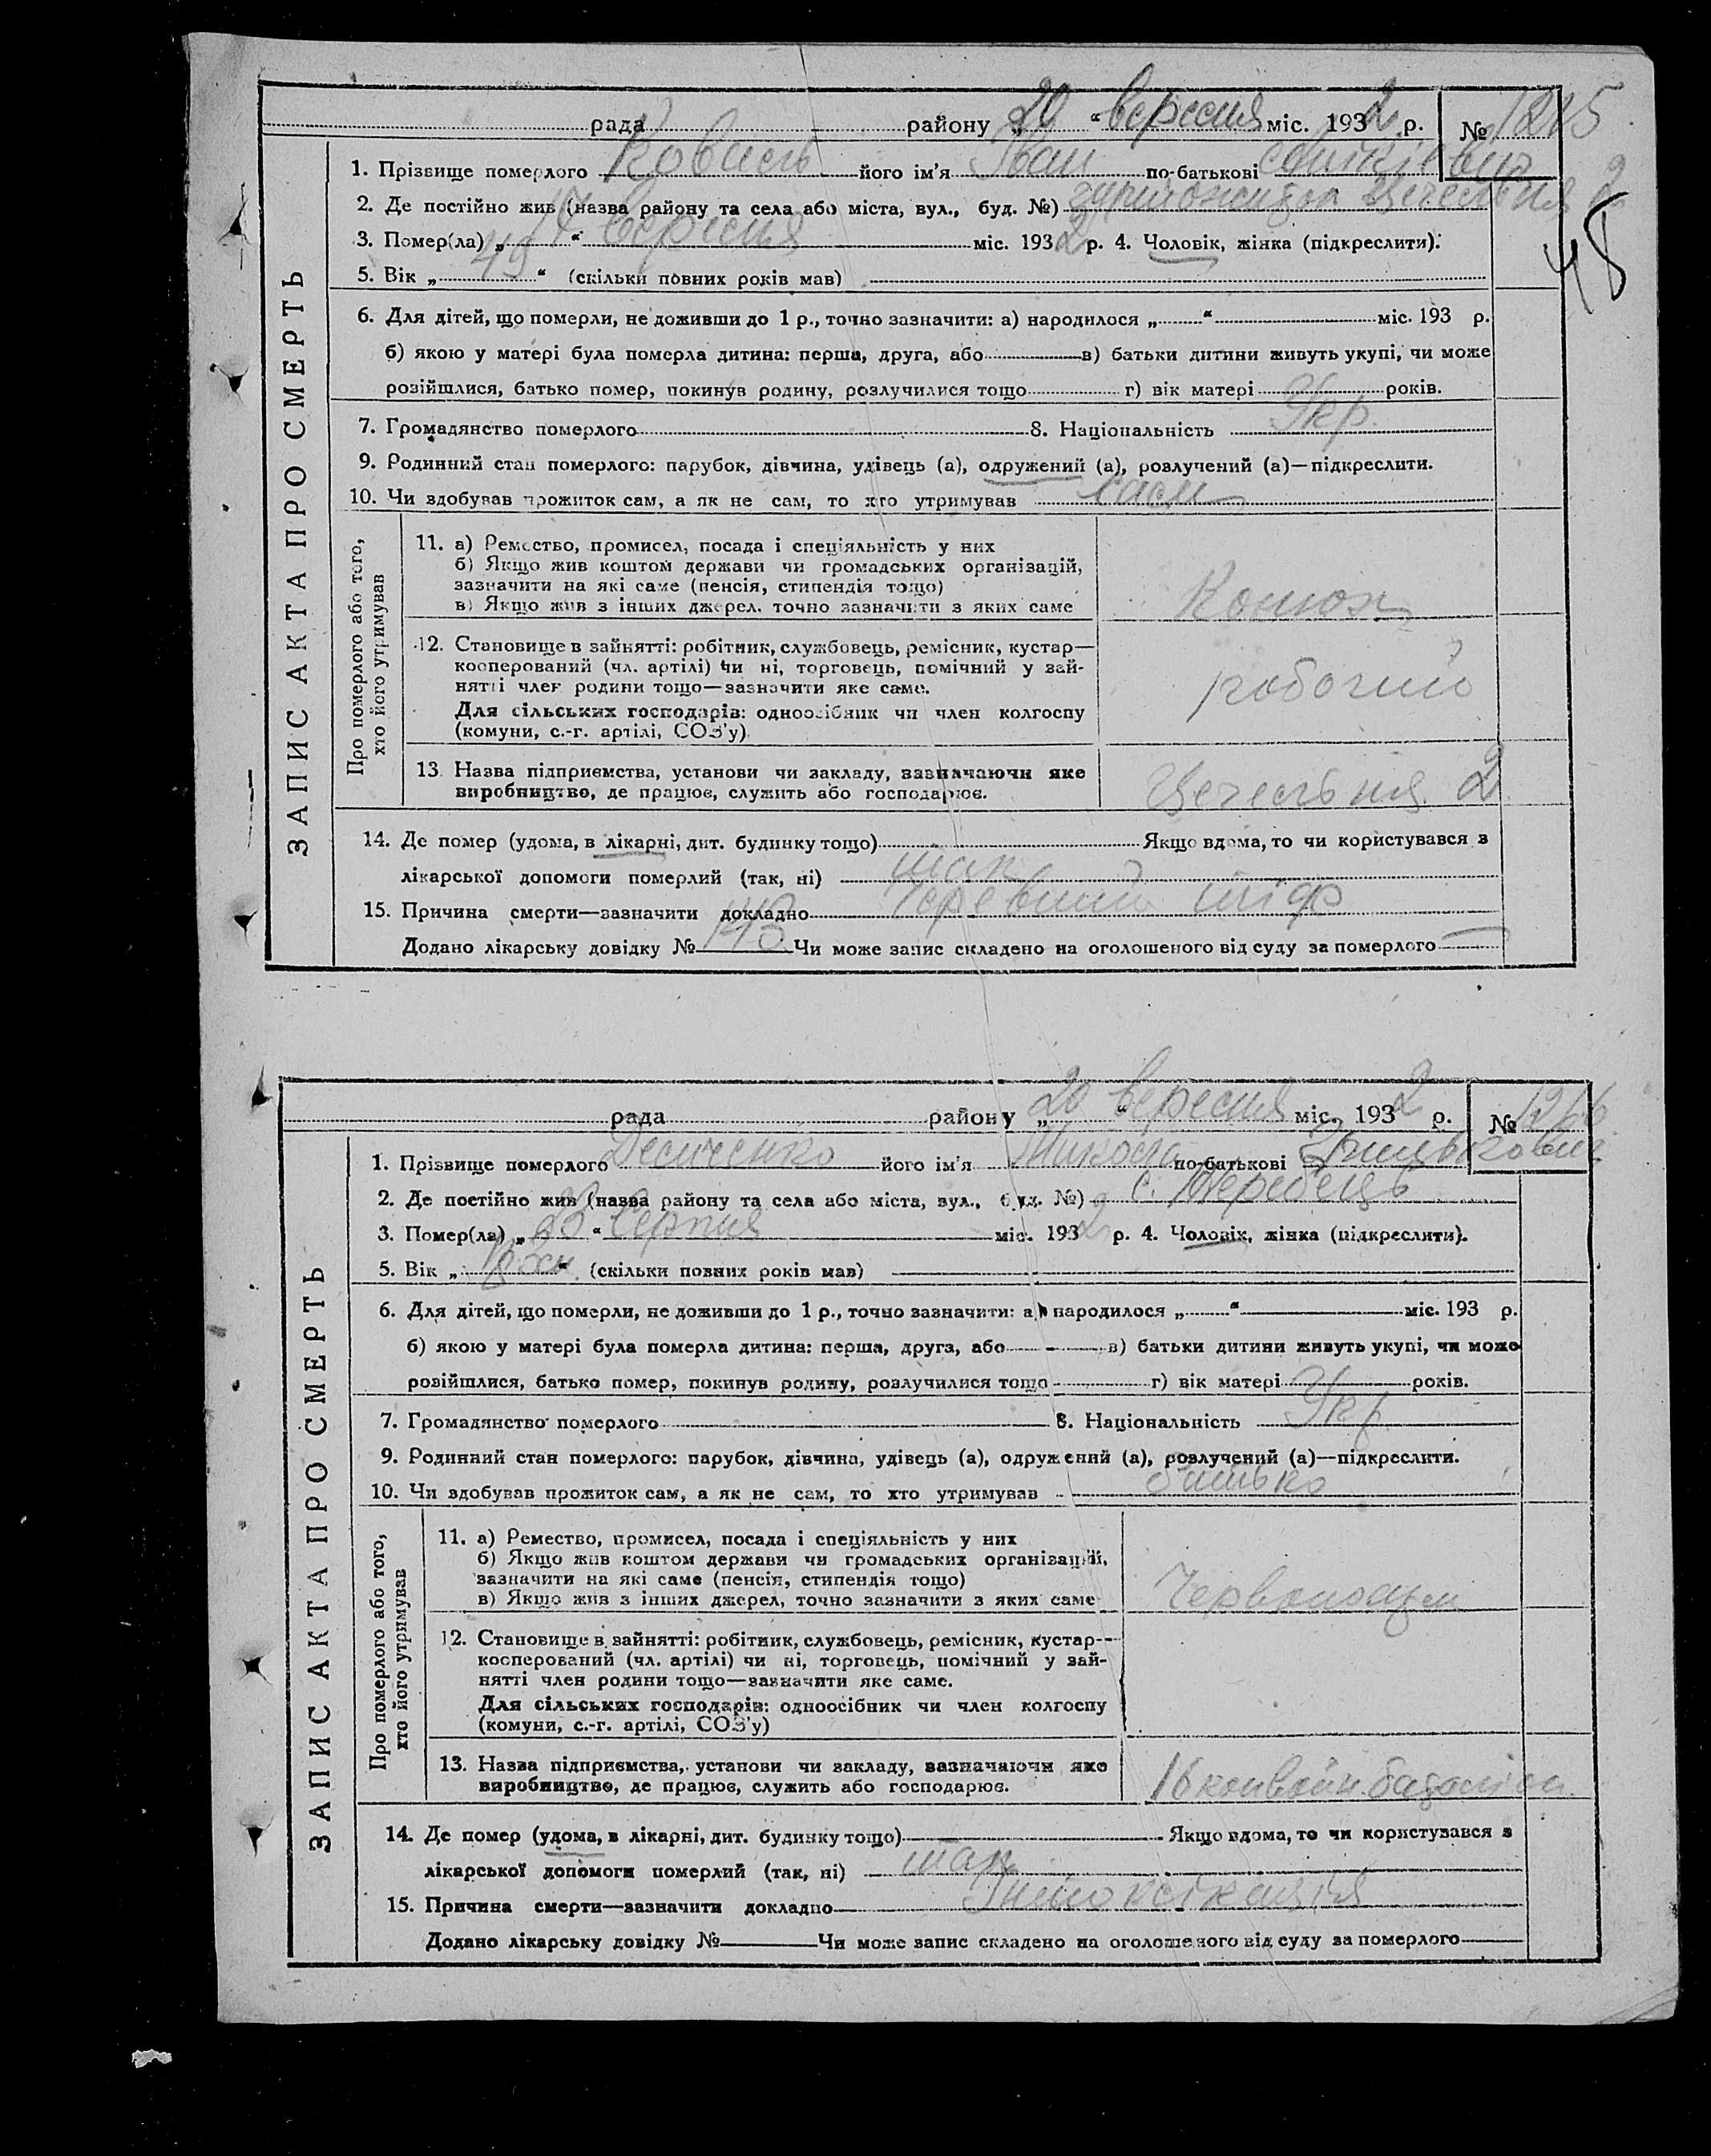 рада району „20“ вересня міс. 1932 р. №
1. Прізвище померлого Коваль його ім'я Іван по-батькові
2. Де постійно жив (назва району та села або міста, вул., буд. №) гуртожиток
3. Помер(ла) „17“ вересня міс. 1932 р. 4. Чоловік, жінка (підкреслити).
5. Вік „49“ (скільки повних років мав)
6. Для дітей, що померли, не доживши до 1 р., точно зазначити: а) народилося „ “ міс. 193 р.
б) якою у матері була померла дитина: перша, друга, або в) батьки дитини живуть укупі, чи може
розійшлися, батько помер, покинув родину, розлучилися тощо г) вік матері років.
7. Громадянство померлого 8. Національність Укр.
9. Родинний стан померлого: парубок, дівчина, удівець (а), одружений (а), розлучений (а)—підкреслити.
10. Чи здобував прожиток сам, а як не сам, то хто утримував сам
ЗАПИС АКТА ПРО СМЕРТЬ
Про померлого або того,
хто його утримував
11. а) Ремество, промисел, посада і спеціяльність у них
б) Якщо жив коштом держави чи громадських організацій,
зазначити на які саме (пенсія, стипендія тощо)
в) Якщо жив з інших джерел, точно зазначити з яких саме
Конюх
12. Становище в зайнятті: робітник, службовець, ремісник, кустар—
кооперований (чл. артілі) чи ні, торговець, помічний у зай-
нятті член родини тощо—зазначити яке саме.
Для сільських господарів: одноосібник чи член колгоспу
(комуни, с.-г. артілі, СОЗ'у)
робочий
13. Назва підприємства, установи чи закладу, зазначаючи яке
виробництво, де працює, служить або господарює.
2
14. Де помер (удома, в лікарні, дит. будинку тощо) Якщо вдома, то чи користувався з
лікарської допомоги померлий (так, ні) так
15. Причина смерти—зазначити докладно тіф
Додано лікарську довідку № Чи може запис складено на оголошеного від суду за померлого
48
рада району „20“ вересня міс. 1932 р. №
1. Прізвище померлого його ім'я Микола по-батькові
2. Де постійно жив (назва району та села або міста, вул., буд. №) с.
3. Помер(ла) „23“ Серпня міс. 1932 р. 4. Чоловік, жінка (підкреслити).
5. Вік „ “ (скільки повних років мав)
6. Для дітей, що померли, не доживши до 1 р., точно зазначити: а) народилося „ “ міс. 193 р.
б) якою у матері була померла дитина: перша, друга, або в) батьки дитини живуть укупі, чи може
розійшлися, батько помер, покинув родину, розлучилися тощо г) вік матері років.
7. Громадянство померлого 8. Національність Укр
9. Родинний стан померлого: парубок, дівчина, удівець (а), одружений (а), розлучений (а)—підкреслити.
10. Чи здобував прожиток сам, а як не сам, то хто утримував батько
ЗАПИС АКТА ПРО СМЕРТЬ
Про померлого або того,
хто його утримував
11. а) Ремество, промисел, посада і спеціяльність у них
б) Якщо жив коштом держави чи громадських організацій,
зазначити на які саме (пенсія, стипендія тощо)
в) Якщо жив з інших джерел, точно зазначити з яких саме
12. Становище в зайнятті: робітник, службовець, ремісник, кустар—
кооперований (чл. артілі) чи ні, торговець, помічний у зай-
нятті член родини тощо—зазначити яке саме.
Для сільських господарів: одноосібник чи член колгоспу
(комуни, с.-г. артілі, СОЗ'у)
13. Назва підприємства, установи чи закладу, зазначаючи яке
виробництво, де працює, служить або господарює.
16 конвойн.
14. Де помер (удома, в лікарні, дит. будинку тощо) Якщо вдома, то чи користувався з
лікарської допомоги померлий (так, ні) так
15. Причина смерти—зазначити докладно Інтоксікація
Додано лікарську довідку № Чи може запис складено на оголошеного від суду за померлого